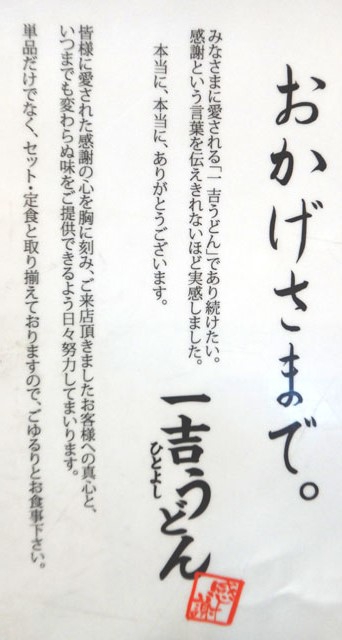 おかげさまで。
みなさまに愛される「一吉うどん」であり続けたい。
感謝という言葉を伝えきれないほど実感しました。
本当に、本当に、ありがとうございます。
一吉うどん
ひとよし
感謝
皆様に愛された感謝の心を胸に刻み、ご来店頂きましたお客様への真心と、
いつまでも変わらぬ味をご提供できるよう日々努力してまいります。
単品だけでなく、セット・定食と取り揃えておりますので、ごゆるりとお食事下さい。